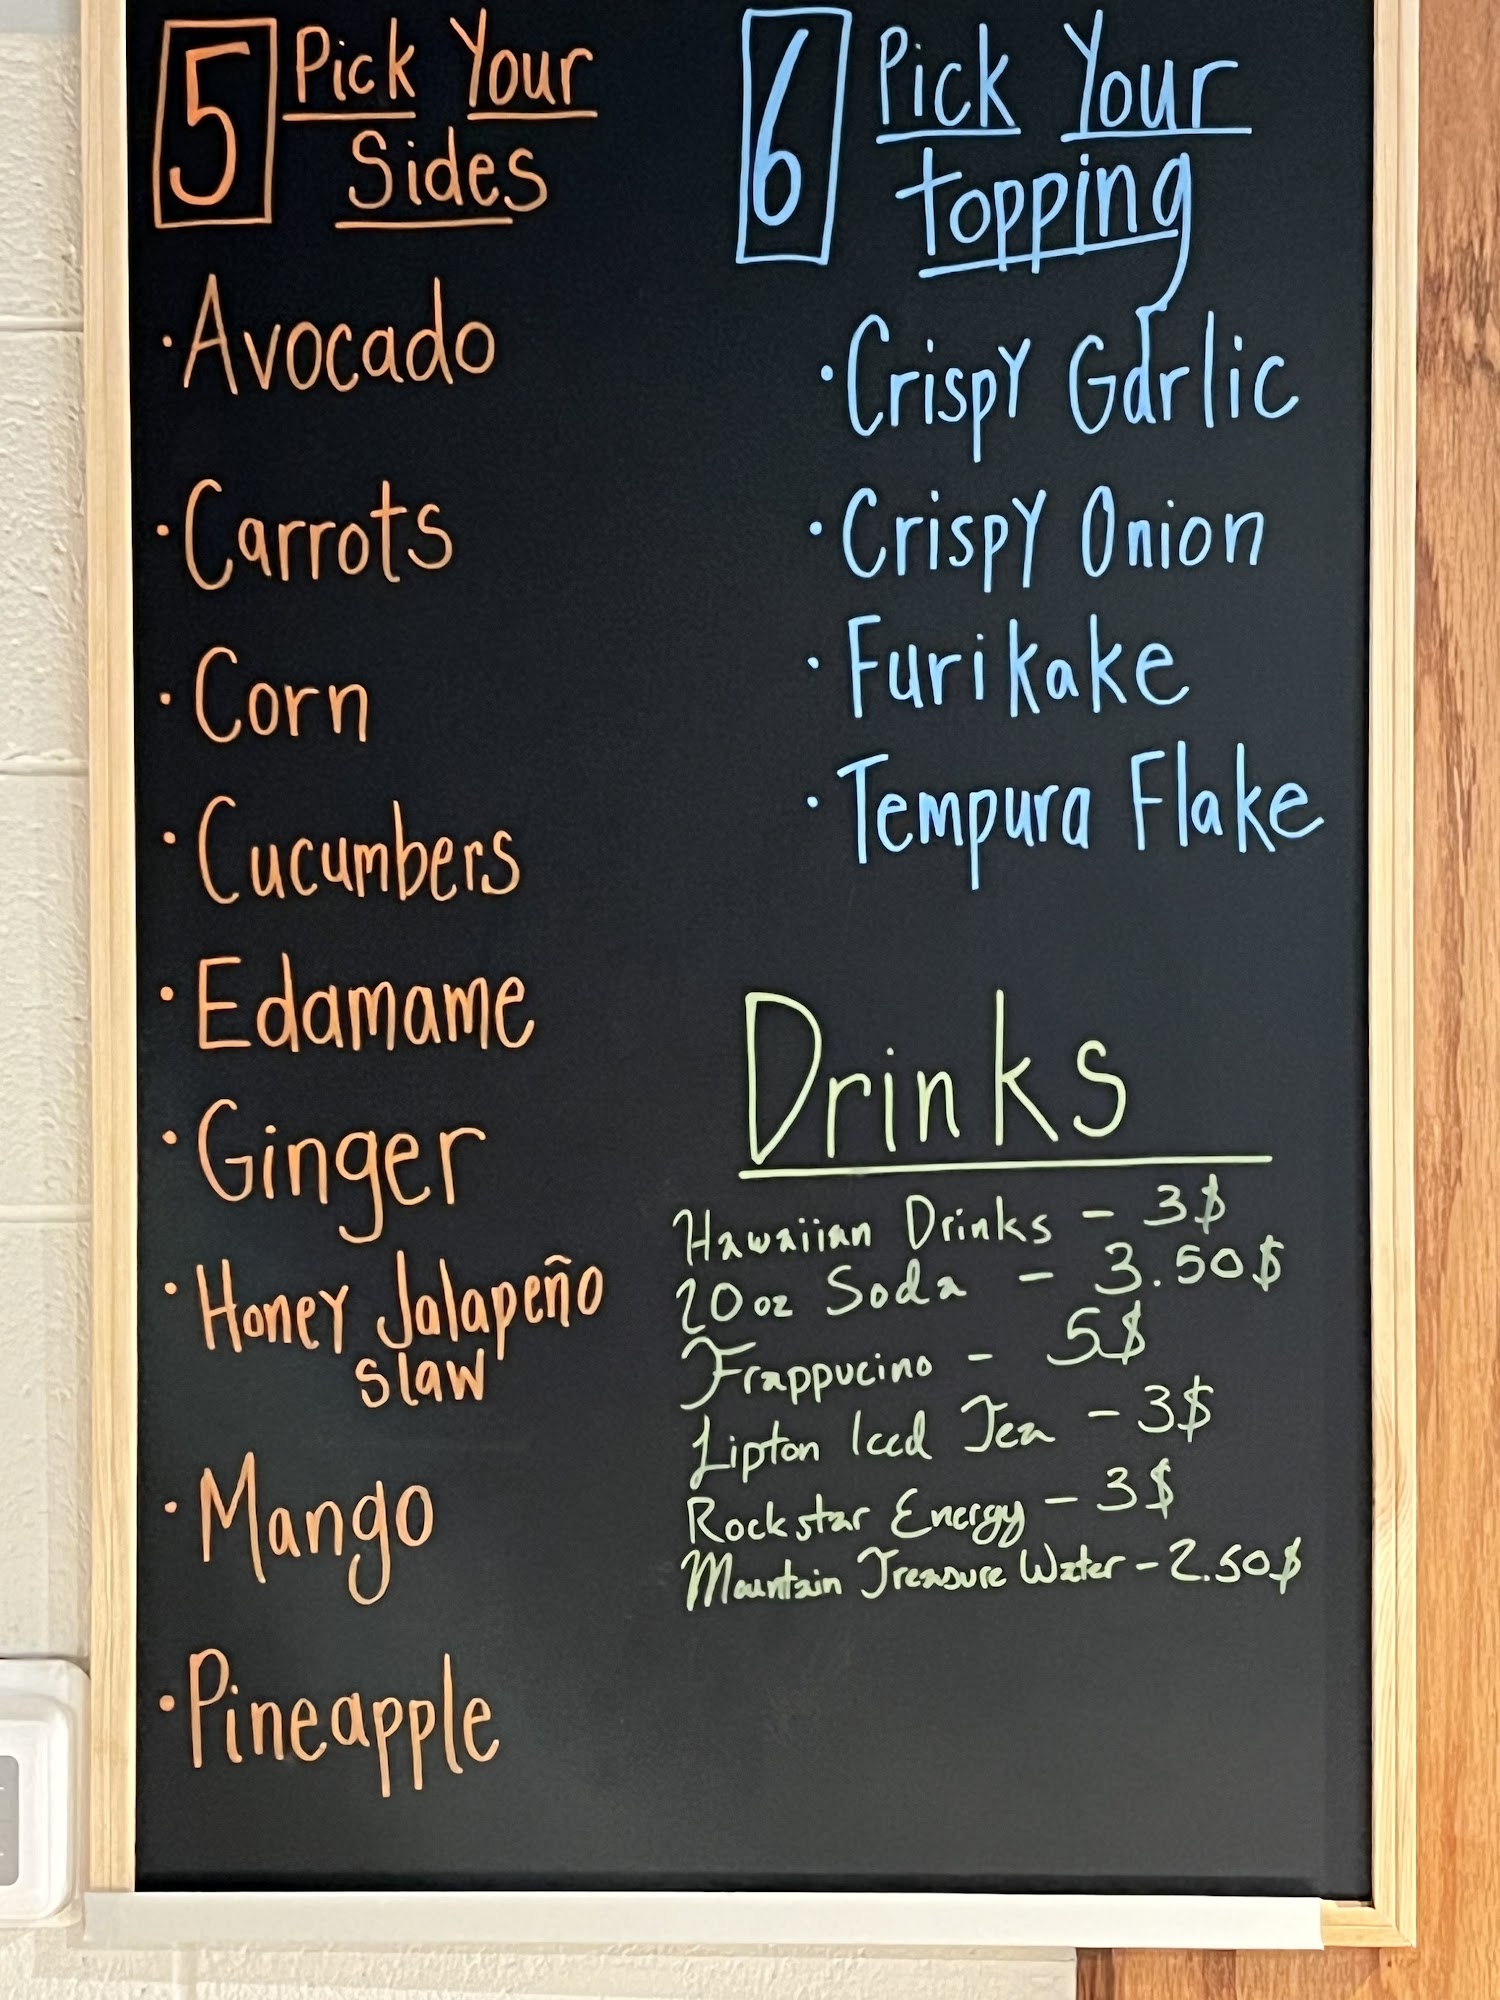 5 Pick Your
Sides
· Avocado
· Carrots
· Corn
· Cucumbers
· Edamame
· Ginger
· Honey Jalapeño
slaw
· Mango
· Pineapple
6 Pick Your
topping
· Crispy Garlic
· Crispy Onion
· Furikake
· Tempura Flake
Drinks
Hawaiian Drinks - 3$
20oz Soda - 3.50$
Frappucino - 5$
Lipton Iced Tea - 3$
Rockstar Energy - 3$
Mountain Treasure Water - 2.50$